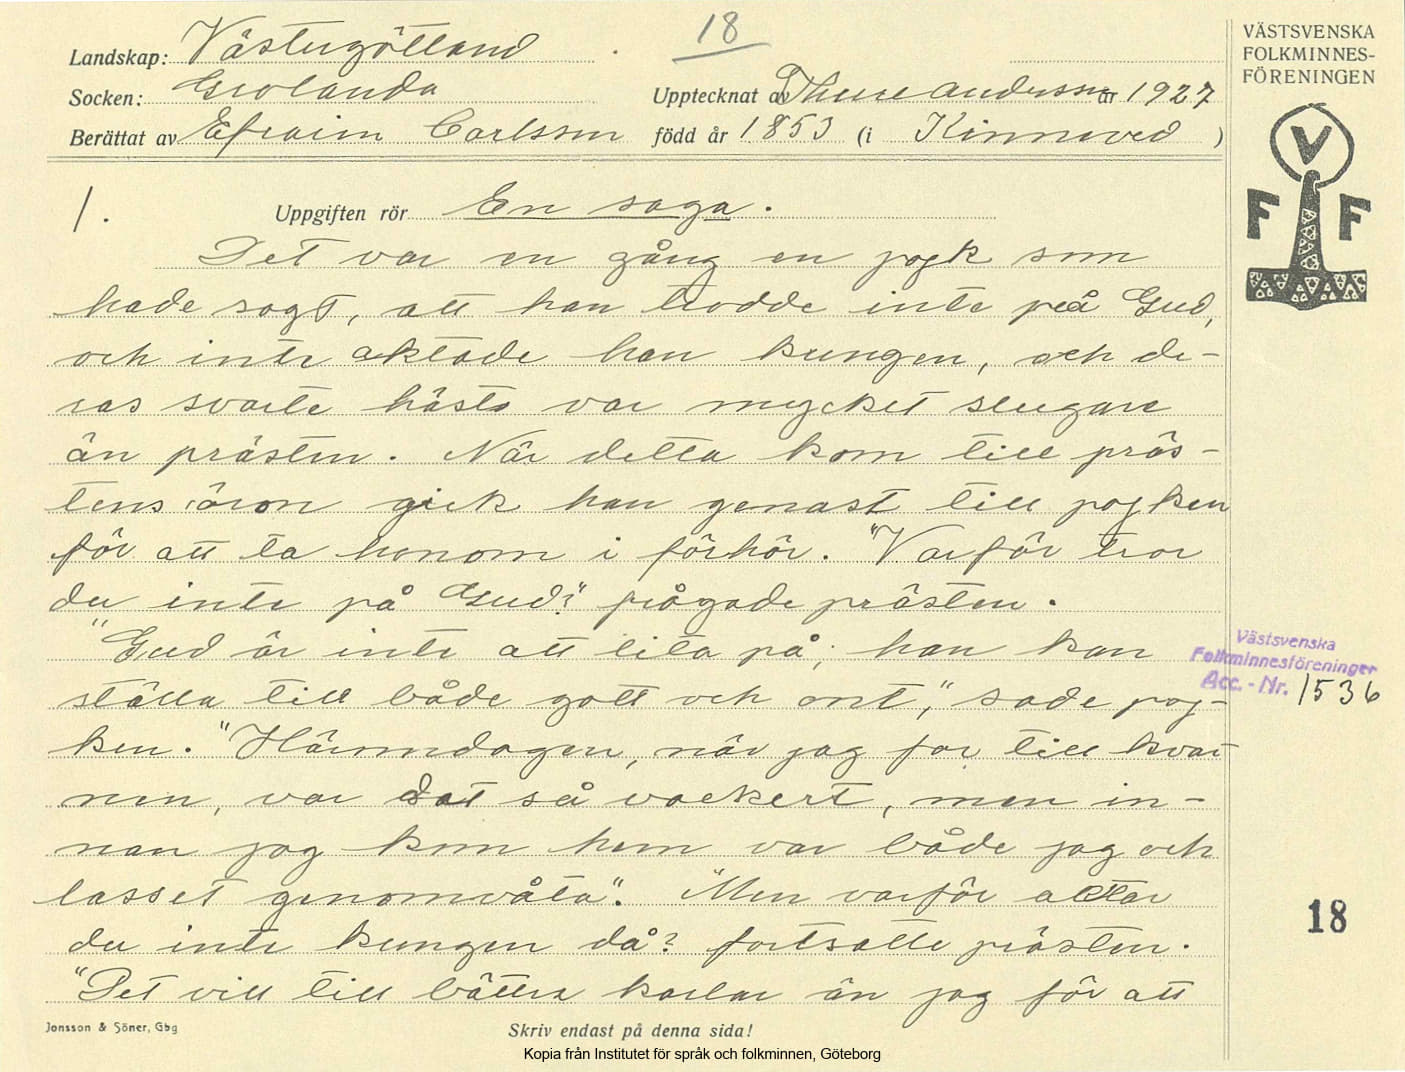 18
Landskap: Västergötland
Socken: Grolanda
Upptecknat av Thure Andersson år 1927
Berättat av Efraim Carlsson född år 1853 (i Kinneved )
1. Uppgiften rör En saga.
Det var en gång en pojk som
hade sagt, att han trodde inte på Gud,
och inte aktade han kungen, och de-
ras svarte häst var mycket slugare
än prästen. När detta kom till präs-
tens öron gick han genast till pojken
för att ta honom i förhör. "Varför tror
du inte på Gud?" frågade prästen.
"Gud är inte att lita på; han kan
ställa till både gott och ont", sade poj-
ken. "Häromdagen, när jag for till kvar
nen, var dat så vackert, men in-
nan jag kom hem var både jag och
lasset genomvåta". "Men varför aktar
du inte kungen då? fortsatte prästen.
"Det vill till bättre karlar än jag för att
Jonsson & Söner, Gbg
Skriv endast på denna sida!
Kopia från Institutet för språk och folkminnen, Göteborg
VÄSTSVENSKA
FOLKMINNES-
FÖRENINGEN
V
F F
Västsvenska
Folkminnesföreningen
Acc. - Nr. 1536
18